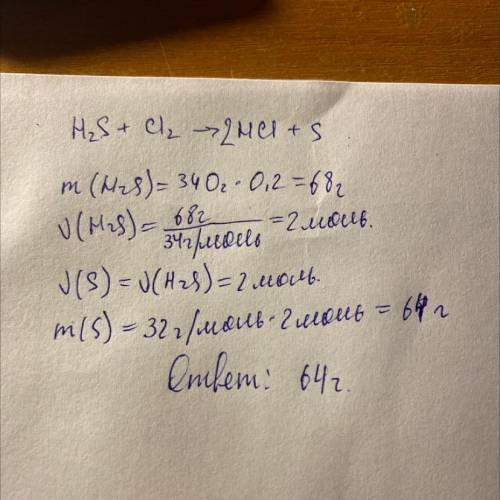 H₂S + Cl₂ → 2HCl + S
m(H₂S) = 340г · 0,2 = 68г
ν(H₂S) = 68г / 34г/моль = 2 моль.
ν(S) = ν(H₂S) = 2 моль.
m(S) = 32г/моль · 2 моль = 64г
Ответ: 64г.